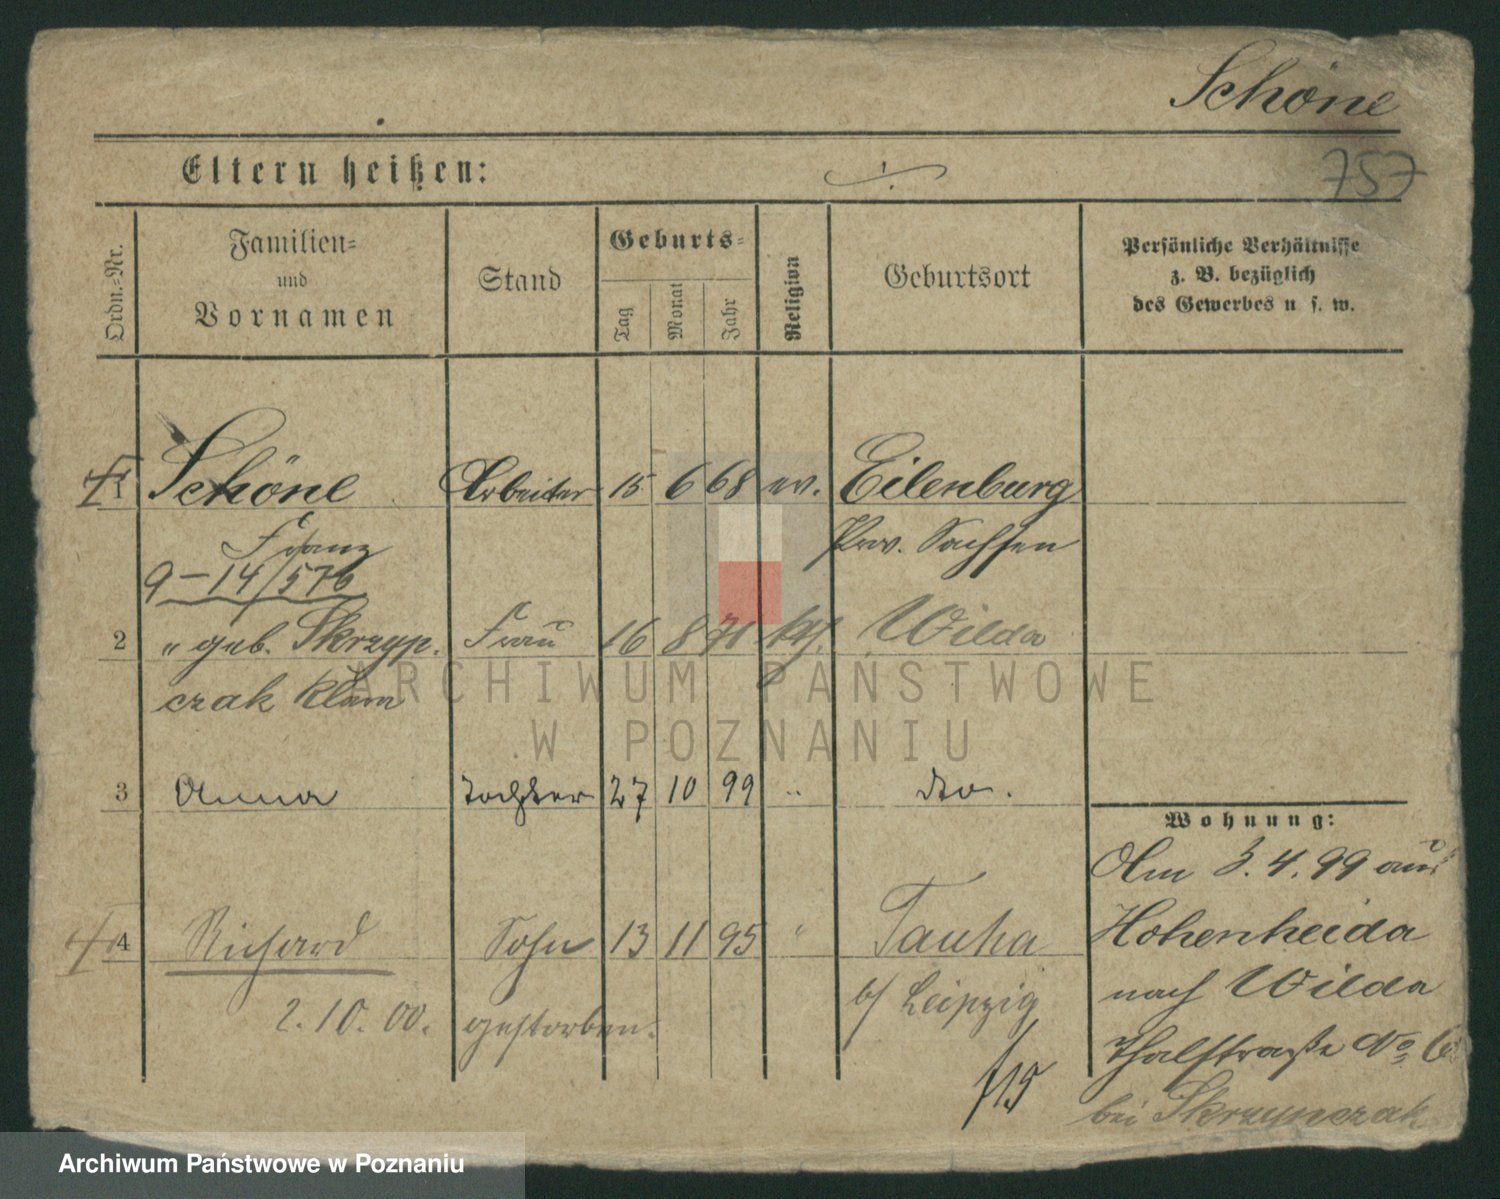 Schöne
757
Eltern heißen: ./.
Ordn.-Nr. Familien- und Vornamen Stand Geburts- Tag Monat Jahr Religion Geburtsort Persönliche Verhältnisse z. B. bezüglich des Gewerbes u. s. w.
1 Schöne Arbeiter 15 6 68 ev. Eilenburg
Franz Prov. Sachsen
9-14/576
2 " geb. Skrzyp- Frau 16 8 71 kth. Wilda
czak Klara
3 Anna Tochter 27 10 99 " dto.
4 Richard Sohn 13 11 95 " Taucha
2.10.00. gestorben. b/ Leipzig
Wohnung:
Am 3.4.99 aus
Hohenheida
nach Wilda
Thalstraße No 6
bei Skrzypczak
ARCHIWUM PAŃSTWOWE
W POZNANIU
Archiwum Państwowe w Poznaniu